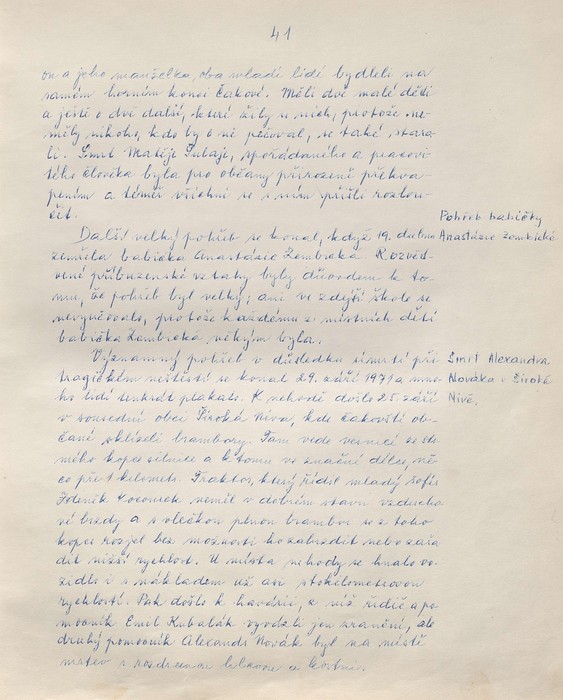 41
on a jeho manželka, oba mladí lidé bydleli na
samém horním konci Čakové. Měli dvě malé děti
a ještě o dvě další, které žily u nich, protože ne-
měly nikoho, kdo by o ně pečoval, se také stara-
li. Smrt Matěje, spořádaného a pracovi-
tého člověka byla pro občany přirozeně překva-
pením a téměř všichni se s ním přišli rozlou-
čit.
Pohřeb babičky
Další velký pohřeb se konal, když 19. dubna
Anastázie Zembické
zemřela babička Anastázie Zembická. Rozvěd-
vené příbuzenské vztahy byly důvodem k to-
mu, že pohřeb byl velký; ani ve zdejší škole se
nevyučovalo, protože každému z místních dětí
babička Zembická někým byla.
Významný pohřeb v důsledku úmrtí při
Smrt Alexandra
tragickém neštěstí se konal 29. září 1971 a mno-
Nováka v Široké
ho lidí tenkrát plakalo. K nehodě došlo 25. září
Nivě.
v sousední obci Široká Niva, kde čakovští ob-
čané sklízeli brambory. Tam vede vesnicí ze str-
mého kopce silnice a k tomu ve značné délce, ně-
co přes 1 kilometr. Traktor, který řídil mladý šofér
Zdeněk neměl v dobrém stavu vzducho-
vé brzdy a s vlečkou plnou brambor se z toho
kopce rozjel bez možnosti ho zabrzdit nebo zařa-
dit nižší rychlost. U místa nehody se hnalo vo-
zidlo i s nákladem už asi stokilometrovou
rychlostí. Pak došlo k havárii, z níž řidič a po-
mocník Emil Kubalák vyvázli jen zranění, ale
druhý pomocník Alexandr Novák byl na místě
mrtev s rozdrcenou hlavou a končetin.